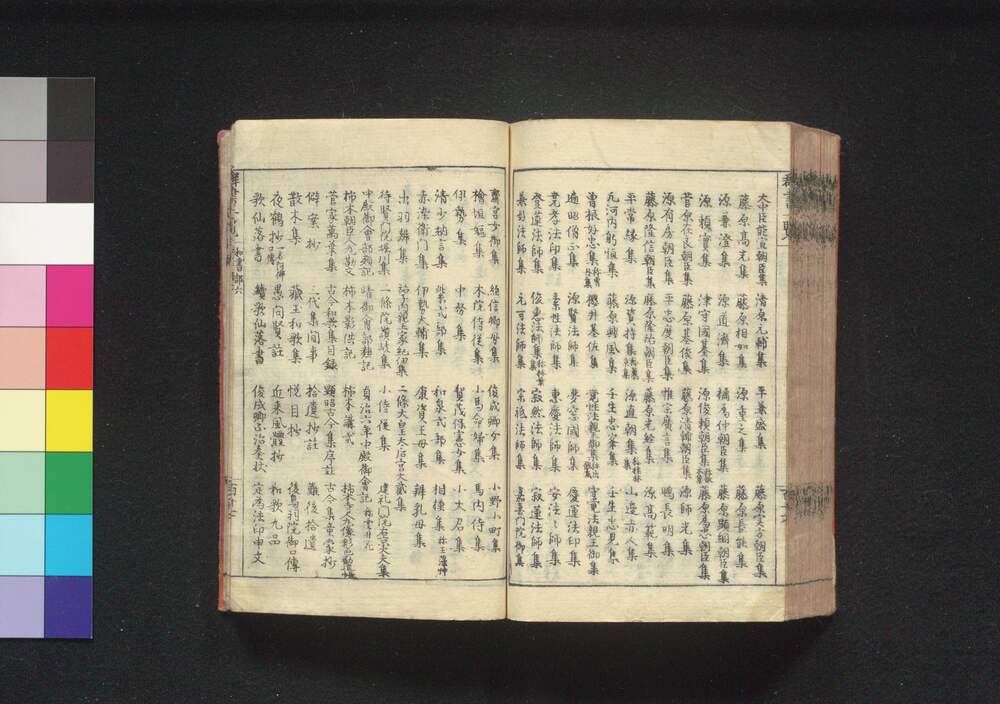 大中臣能宣朝臣集 清原元輔集 平兼盛集 藤原実方朝臣集
藤原高光集 藤原相如集 源重之集 藤原長能集
源兼澄集 源道済集 橘為仲朝臣集 藤原顕綱朝臣集
源頼実集 津守國基集 源俊頼朝臣集 藤原為忠朝臣集
菅原在良朝臣集 藤原基俊集 藤原清輔朝臣集 源師光集
源有房朝臣集 平忠度朝臣集 惟宗廣言集 鴨長明集
藤原隆信朝臣集 藤原隆祐朝臣集 藤原光経集 源高範集
平常縁集 源直朝集 山邊赤人集
凡河内躬恒集 藤原輔風集 壬生忠岑集 壬生忠見集
曽根好忠集 櫻井基佐集 覚性法親王御集 守覚法親王御集
遍昭僧正集 源賢法師集 夢窓國師集 慶運法印集
堯孝法印集 素性法師集 恵慶法師集 安法法師集
登蓮法師集 俊恵法師集 寂然法師集 寂蓮法師集
元可法師集 宗祇法師集 嘉喜門院御集
齋宮女御集 経信卿母集 俊成卿女集 小野小町集
檜垣嫗集 本院侍従集 小馬命婦集 馬内侍集
伊勢集 中務集 賀茂保憲女集 小大君集
清少納言集 紫式部集 和泉式部集 相模集
赤染衛門集 伊勢大輔集 康資王母集 辨乳母集
出羽辨集 祐子内親王家紀伊集 二條大皇太后宮大貳集
待賢門院堀川集 一條院讃岐集 小侍従集 建礼門院右京大夫集
中殿御會部類記 晴御會部類記 貞治六年中殿御會記
柿本朝臣人麿勘文 柿本影供記 柿本講式
菅家萬葉集 古今和哥集目録 顕昭古今集序註
僻案抄 三代集間事 拾遺抄註 難後拾遺
散木集 蔵玉和歌集 悦目抄 後鳥羽院御口傳
夜鶴抄 愚問賢註 近来風體抄 和歌九品
歌仙落書 續歌仙落書 俊成卿正治奏状 定為法印申文